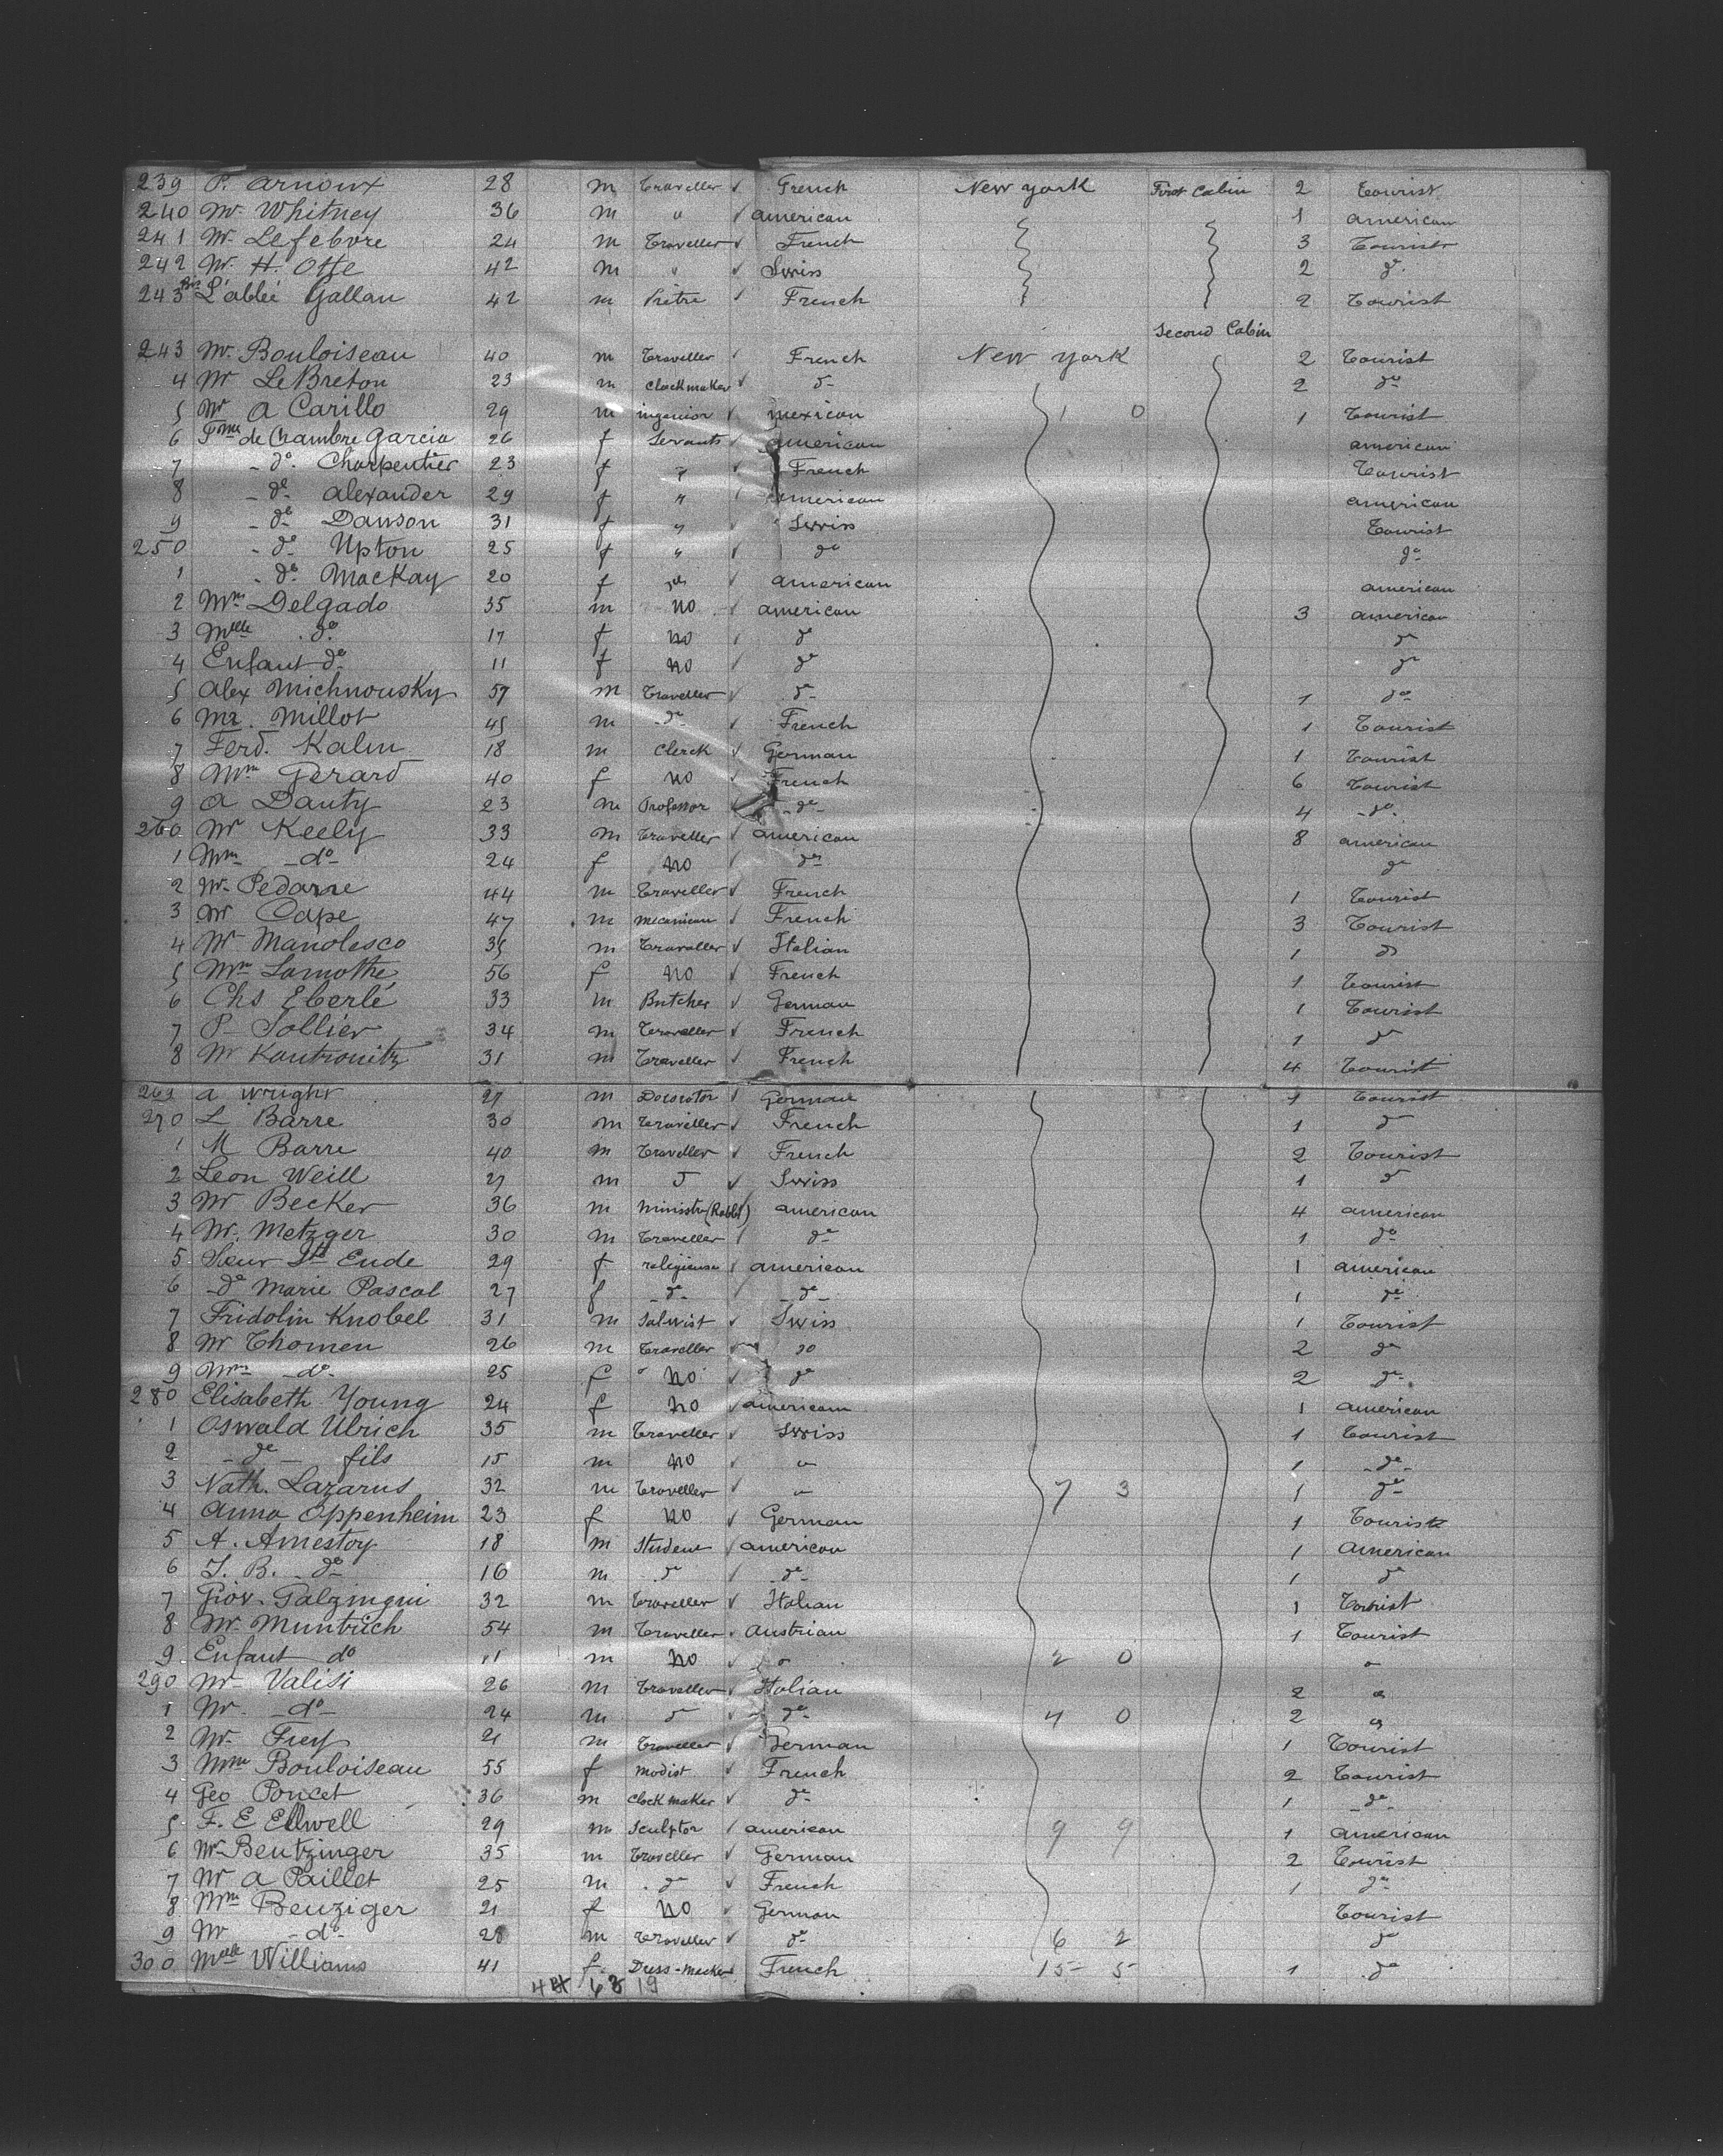 239 P. Arnoux 28 m Traveller ✓ French New York First Cabin 2 Tourist
240 Mr. Whitney 36 m " ✓ American 1 American
241 Mr. Lefebvre 24 m Traveller ✓ French 3 Tourist
242 Mr. H. Otte 42 m " ✓ Swiss 2 do
243 bis L'abbé Gallan 42 m Prêtre ✓ French 2 Tourist
Second Cabin
243 Mr. Bouloiseau 40 m Traveller ✓ French New York 2 Tourist
4 Mr LeBreton 23 m Clockmaker ✓ do 2 do
5 Mr A Carillo 29 m ingenior ✓ Mexican 1 0 1 Tourist
6 Fme de Chambre Garcia 26 f Servants ✓ American American
7 - do. Charpentier 23 f " ✓ French Tourist
8 - do Alexander 29 f " ✓ American American
9 - do Danson 31 f " Swiss Tourist
250 - do Upton 25 f " ✓ do do
1 - do MacKay 20 f ✓ American American
2 Mm Delgado 35 m no ✓ American 3 American
3 Melle do 17 f no ✓ do do
4 Enfant do 11 f no ✓ do do
5 Alex Michnousky 57 m Traveller ✓ do 1 do
6 Mr. Millot 45 m do ✓ French 1 Tourist
7 Ferd. Kalm 18 m Clerck ✓ German 1 Tourist
8 Mm Gerard 40 f no ✓ French 6 Tourist
9 A Dauty 23 m Professor ✓ do 4 do
260 Mr Keely 33 m Traveller ✓ American 8 American
1 Mm do 24 f no ✓ do do
2 Mr. Pedarre 44 m Traveller ✓ French 1 Tourist
3 Mr Cape 47 m Mecanican ✓ French 3 Tourist
4 Mr Manolesco 35 m Traveller ✓ Italian 1 do
5 Mm Lamothe 56 f no ✓ French 1 Tourist
6 Chs Eberlé 33 m Butcher ✓ German 1 Tourist
7 P. Sollier 34 m Traveller ✓ French 1 do
8 Mr Kantrouitz 31 m Traveller ✓ French 4 Tourist
269 A Wright 27 m Decorator ✓ German 1 Tourist
270 L Barre 30 m Traveller ✓ French 1 do
1 M Barre 40 m Traveller ✓ French 2 Tourist
2 Leon Weill 27 m do ✓ Swiss 1 do
3 Mr Becker 36 m Ministre (Rabbi) American 4 American
4 Mr. Metzger 30 m Traveller ✓ do 1 do
5 Soeur Ste Eude 29 f religieuse ✓ American 1 American
6 do Marie Pascal 27 f do ✓ do 1 do
7 Fridolin Knobel 31 m ✓ Swiss 1 Tourist
8 Mr Thomen 26 m Traveller ✓ do 2 do
9 Mm do 25 f no ✓ do 2 do
280 Elisabeth Young 24 f no ✓ American 1 American
1 Oswald Ulrich 35 m Traveller ✓ Swiss 1 Tourist
2 - do - fils 15 m no ✓ " 1 do
3 Nath. Lazarus 32 m Traveller ✓ " 7 3 1 do
4 Anna Oppenheim 23 f no ✓ German 1 Tourist
5 A. Amestoy 18 m Student ✓ American 1 American
6 J. B. do 16 m do ✓ do 1 do
7 Giov. Galzingui 32 m Traveller ✓ Italian 1 Tourist
8 Mr. Muntrich 54 m Traveller ✓ Austrian 1 Tourist
9 Enfant do 11 m no ✓ " 2 0 "
290 Mr Valisi 26 m Traveller ✓ Italian 2 "
1 Mr. do 24 m do ✓ do 4 0 2 "
2 Mr. Frey 21 m Traveller ✓ German 1 Tourist
3 Mme Bouloiseau 55 f Modist ✓ French 2 Tourist
4 Geo Poncet 36 m Clock maker ✓ do 1 do
5 F. E Ellwell 29 m Sculptor ✓ American 9 9 1 American
6 Mr Beutzinger 35 m Traveller ✓ German 2 Tourist
7 Mr A Paillet 25 m do ✓ French 1 do
8 Mm Benziger 21 f no ✓ German Tourist
9 Mr do 28 m Traveller ✓ do 6 2 do
300 Melle Williams 41 f Dress-Macker ✓ French 15 5 1 do
19